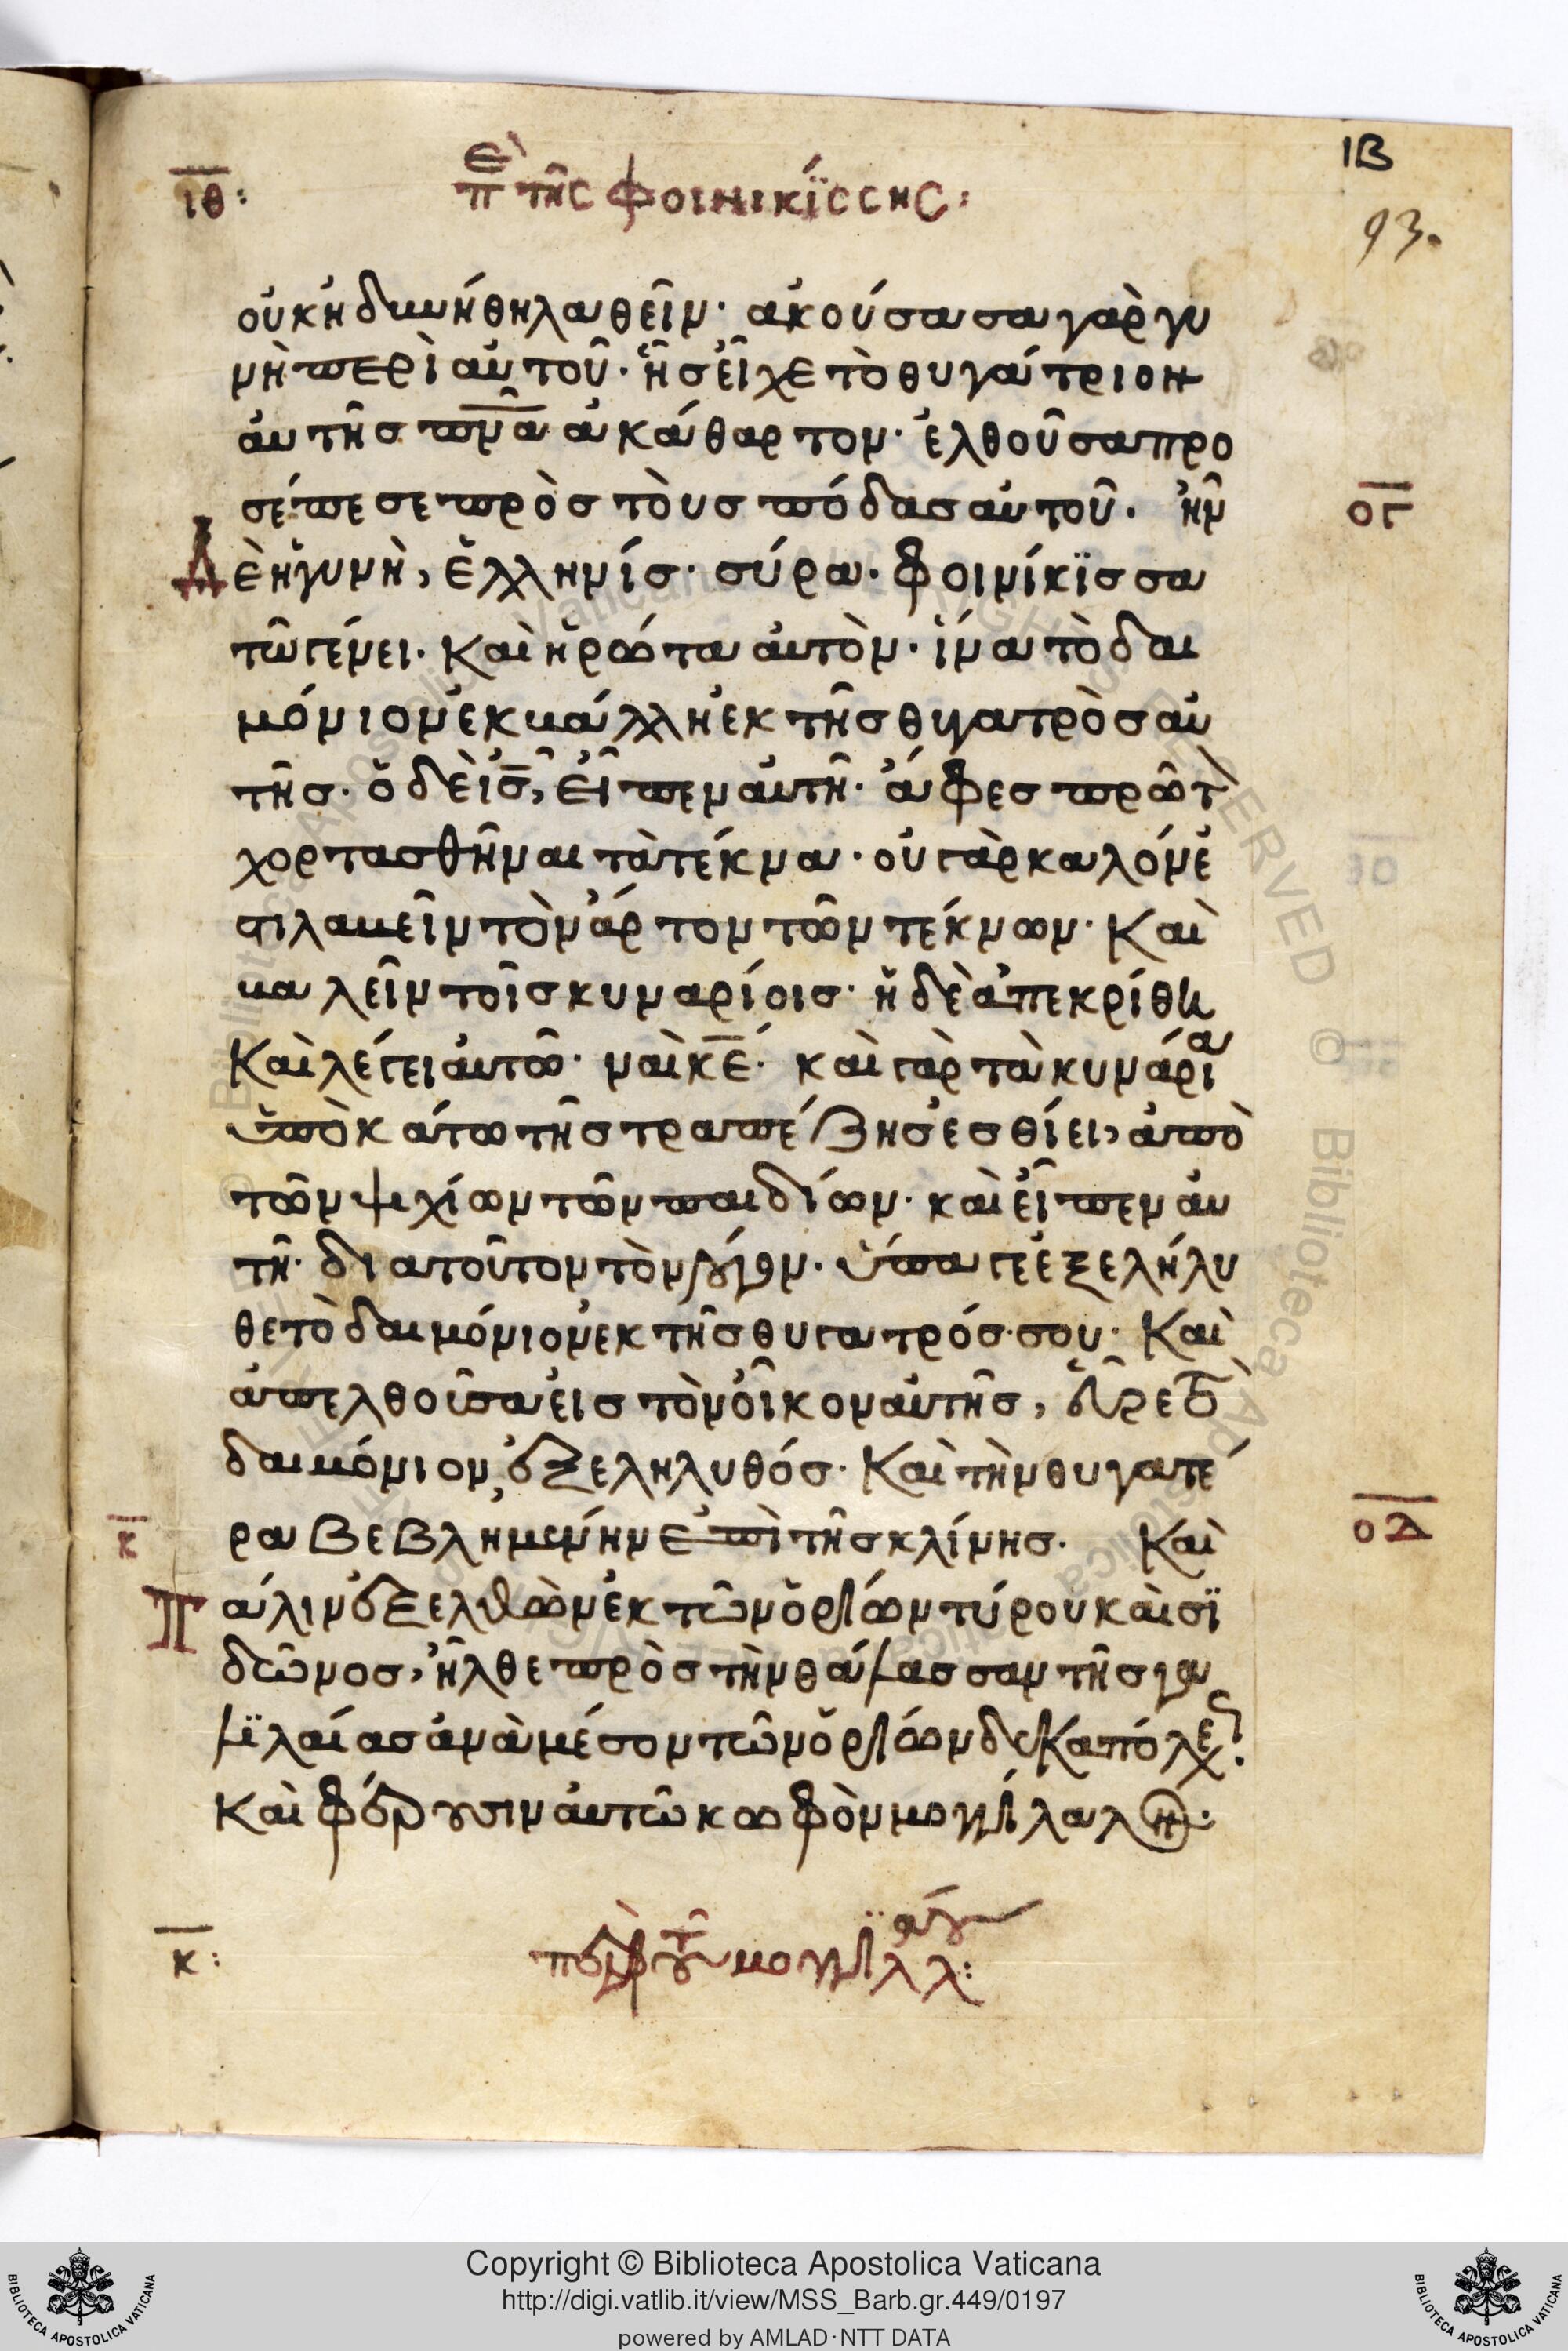 ΙΒ
ιθ: ἐπὶ τῆς φοινικΐσσης:
93.
οὐκ ἠδυνήθη λαθεῖν· ἀκούσασα γὰρ γυ
νὴ περὶ αὐτοῦ· ἧς εἶχε τὸ θυγάτριον
αὐτῆς π̅ν̅α̅ ἀκάθαρτον· ἐλθοῦσα προ
σέπεσε πρὸς τοὺς πόδας αὐτοῦ· ἦν
ογ
Δὲ ἡ γυνὴ, ἑλληνίς· σύρα· φοινίκϊσσα
τῶ γένει· καὶ ἠρώτα αὐτὸν· ἵνα τὸ δαι
μόνιον ἐκβάλλη ἐκ τῆς θυγατρὸς αὐ
τῆς· ὁ δὲ ι̅ς̅, εἶπεν αὐτῆ· ἄφες πρῶτ
χορτασθῆναι τὰ τέκνα· οὐ γὰρ καλόν ἐ
στι λαβεῖν τὸν ἄρτον τῶν τέκνων· καὶ
βαλεῖν τοῖς κυναρίοις· ἡ δὲ ἀπεκρίθη
καὶ λέγει αὐτῶ· ναὶ κ̅ε̅· καὶ γὰρ τὰ κυνάρια
ὑποκάτω τῆς τραπέζης ἐσθίει, ἀπὸ
τῶν ψιχίων τῶν παιδίων· καὶ εἶπεν αὐ
τῆ· διὰ τοῦτον τὸν λόγον· ὕπαγε ἐξελήλυ
θε τὸ δαιμόνιον ἐκ τῆς θυγατρός σου· καὶ
ἀπελθοῦσα εἰς τὸν οἶκον αὐτῆς, εὗρε τὸ
δαιμόνιον ἐξεληλυθός· καὶ τὴν θυγατέ
οδ
κ
ρα βεβλημένην ἐπὶ τῆς κλίνης· καὶ
Πάλιν ἐξελθὼν ἐκ τῶν ὁρίων τύρου καὶ σϊ
δῶνος, ἦλθε πρὸς τὴν θάλασσαν τῆς γα
λϊλαίας ἀνὰ μέσον τῶν ὁρίων δεκαπόλεως·
καὶ φέρουσιν αὐτῶ κωφὸν μογιλάλον·
κ: περὶ τοῦ μογιλάλου:
Copyright © Biblioteca Apostolica Vaticana
http://digi.vatlib.it/view/MSS_Barb.gr.449/0197
powered by AMLAD·NTT DATA
BIBLIOTECA APOSTOLICA VATICANA
BIBLIOTECA APOSTOLICA VATICANA